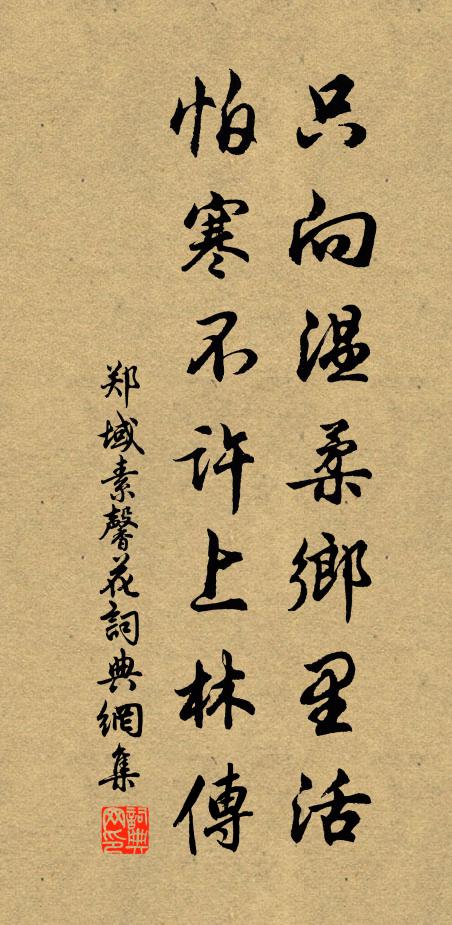 只向温柔鄉里活
怕寒不許上林傳
郑域素馨花詞典網集
詞典網印